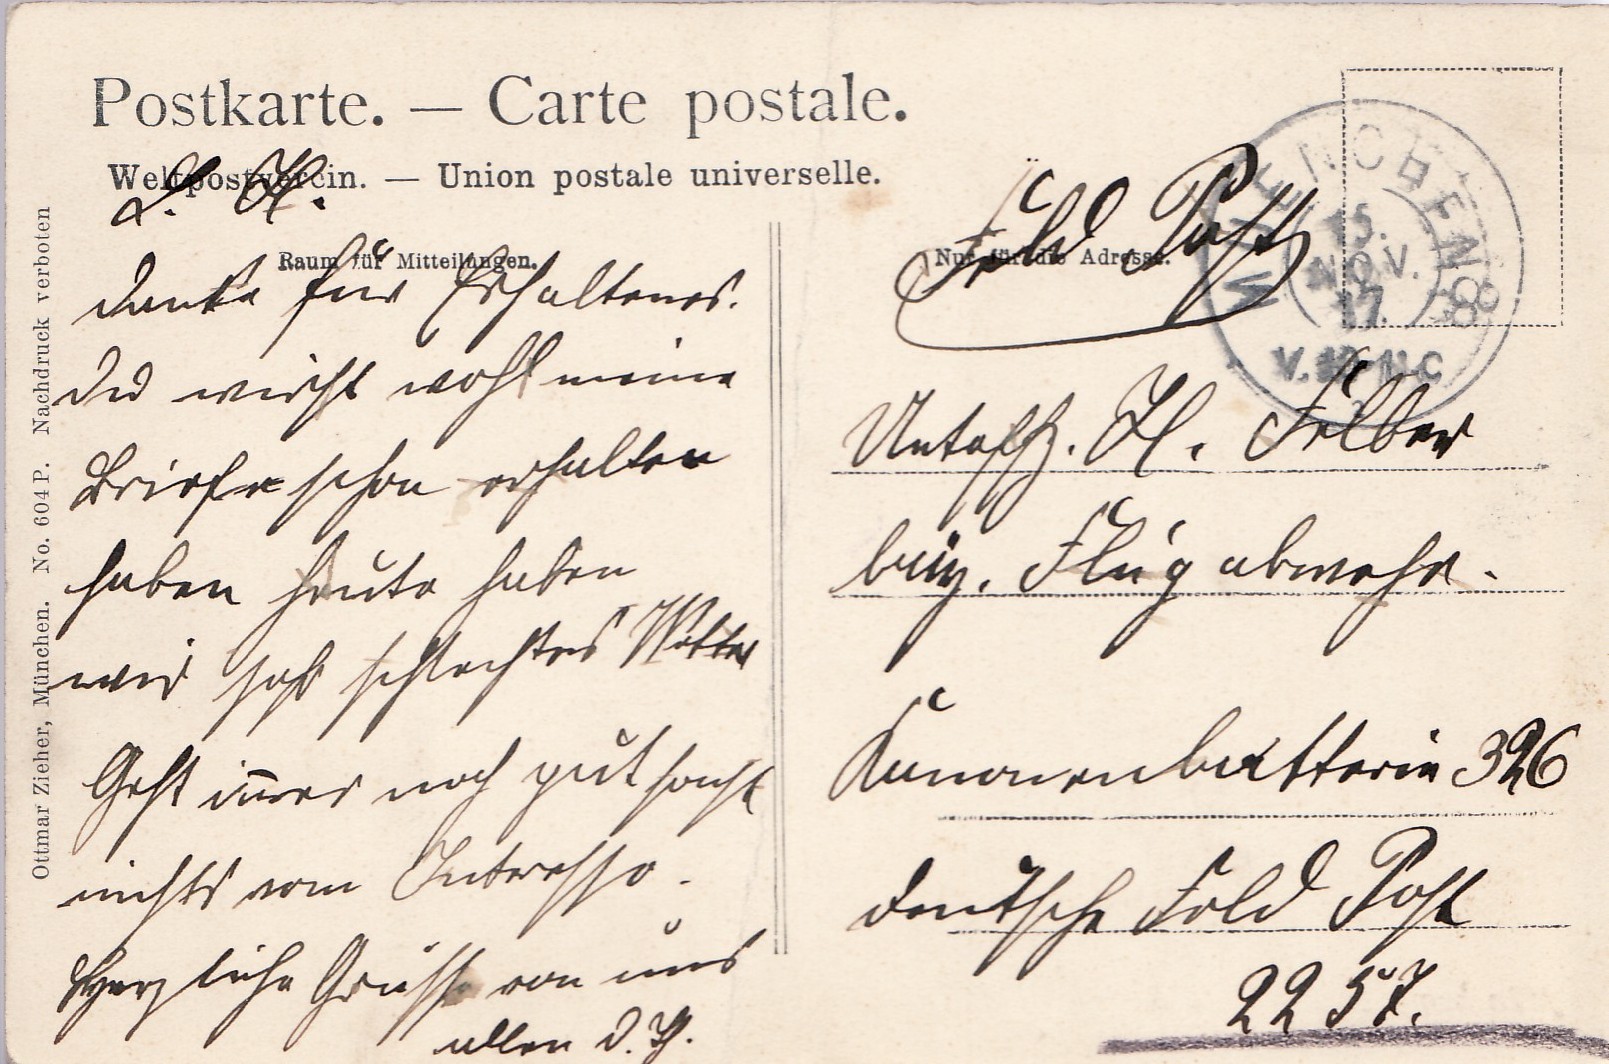 Postkarte. — Carte postale.
Weltpostverein. — Union postale universelle.
L. H.
Raum für Mitteilungen.
Danke für Erhaltenes.
Du wirst wohl meine
Briefe schon erhalten
haben heute haben
wir sehr schlechtes Wetter
Geht immer noch gut sonst
nichts vom Interesse.
Herzliche Grüsse von uns
allen d. H.
Ottmar Zieher, München. No. 604 P. Nachdruck verboten
Nur für die Adresse.
Feld Post
MUENCHEN 38
15.
NOV.
17.
Untoffz. H. Felber
bay. Flugabwehr.
Kanonenbatterie 326
deutsche Feld Post
2257.